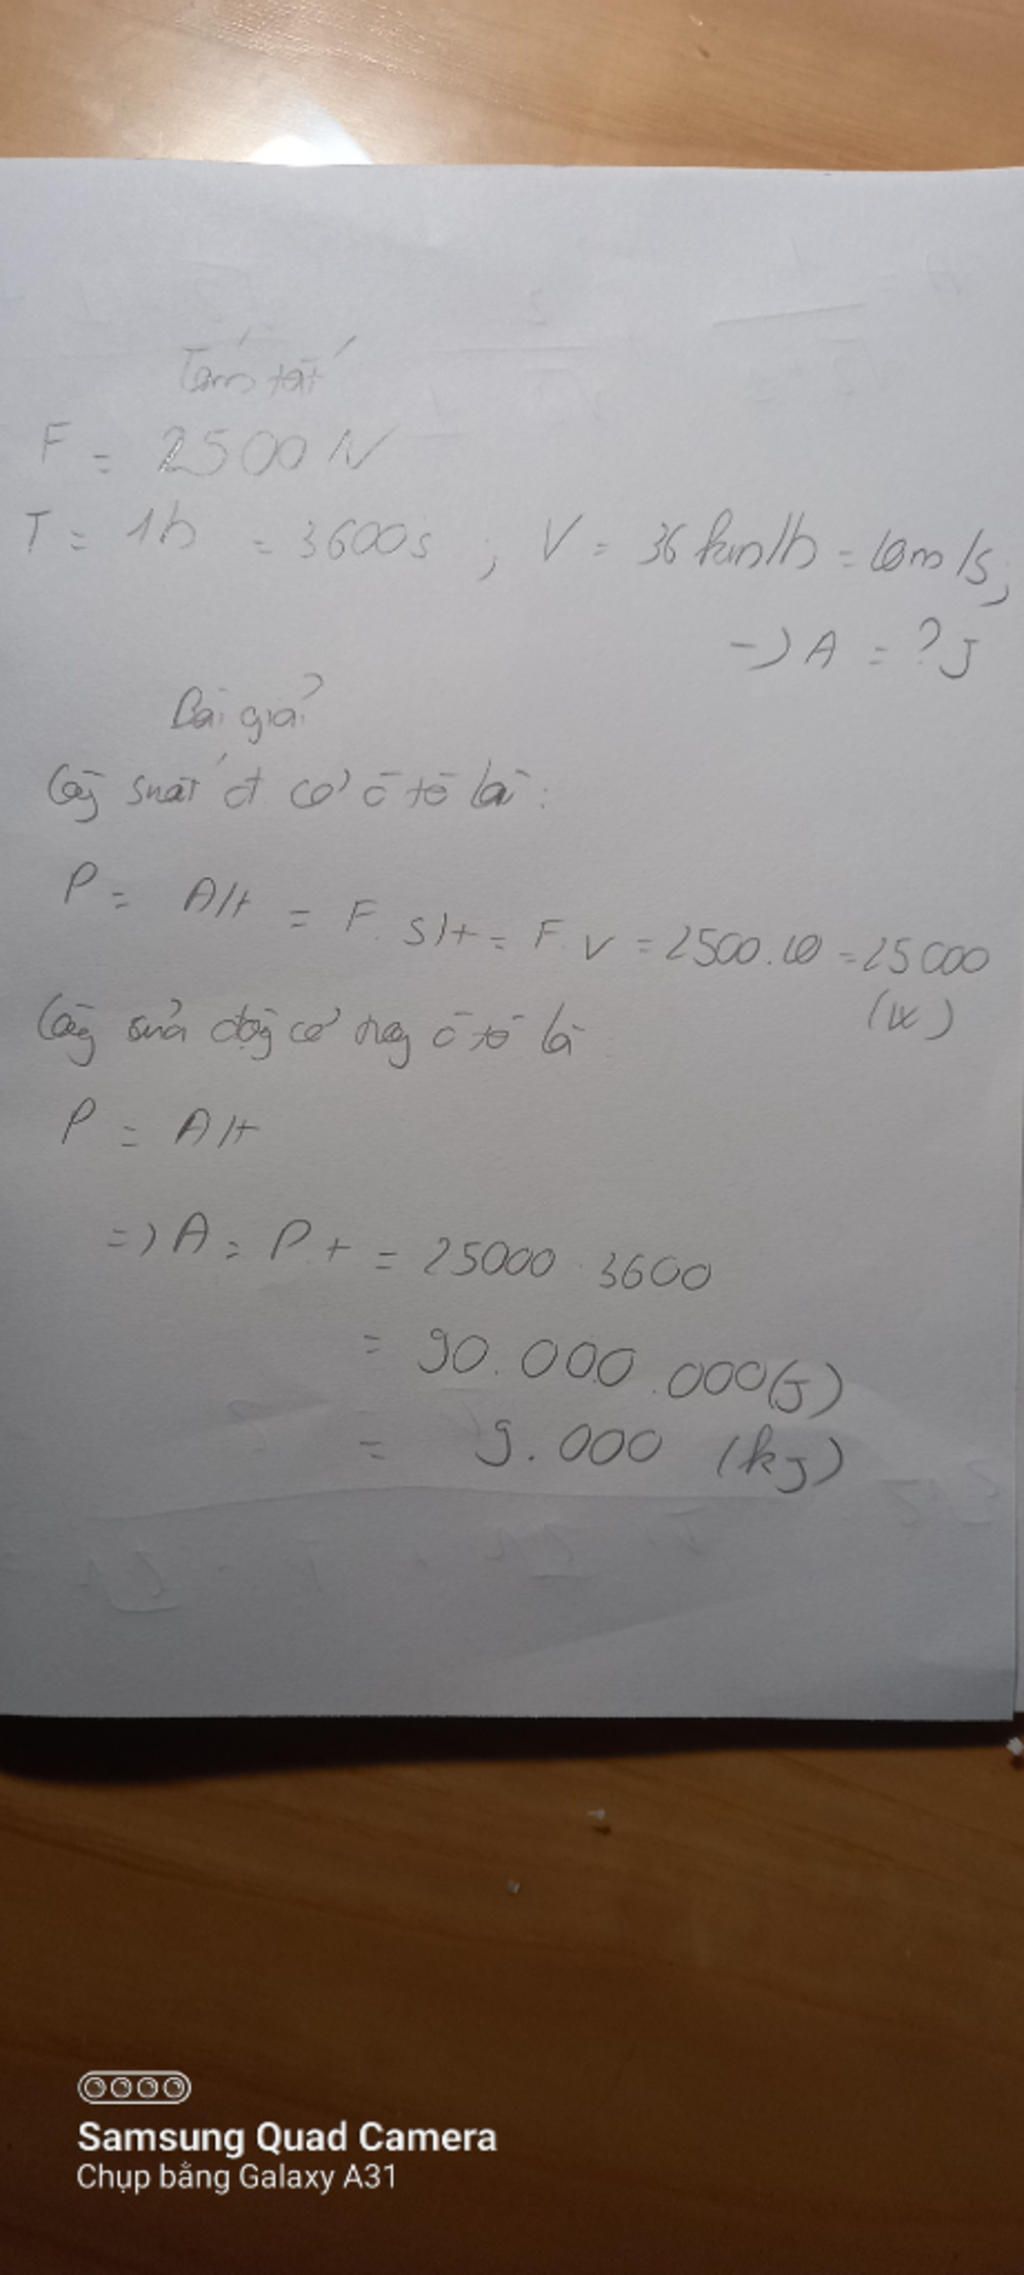 Tóm tắt
F = 2500 N
T = 1h = 3600s ; V = 36 km/h = 10m/s;
=) A = ? J
Bài giải
suất cơ ô tô là:
P = A/t = F. s/t = F. v = 2500.10 = 25000
(W)
cơ ô tô là
P = A/t
=) A = P t = 25000 . 3600
= 90.000.000(J)
= 9.000 (kJ)
Samsung Quad Camera
Chụp bằng Galaxy A31